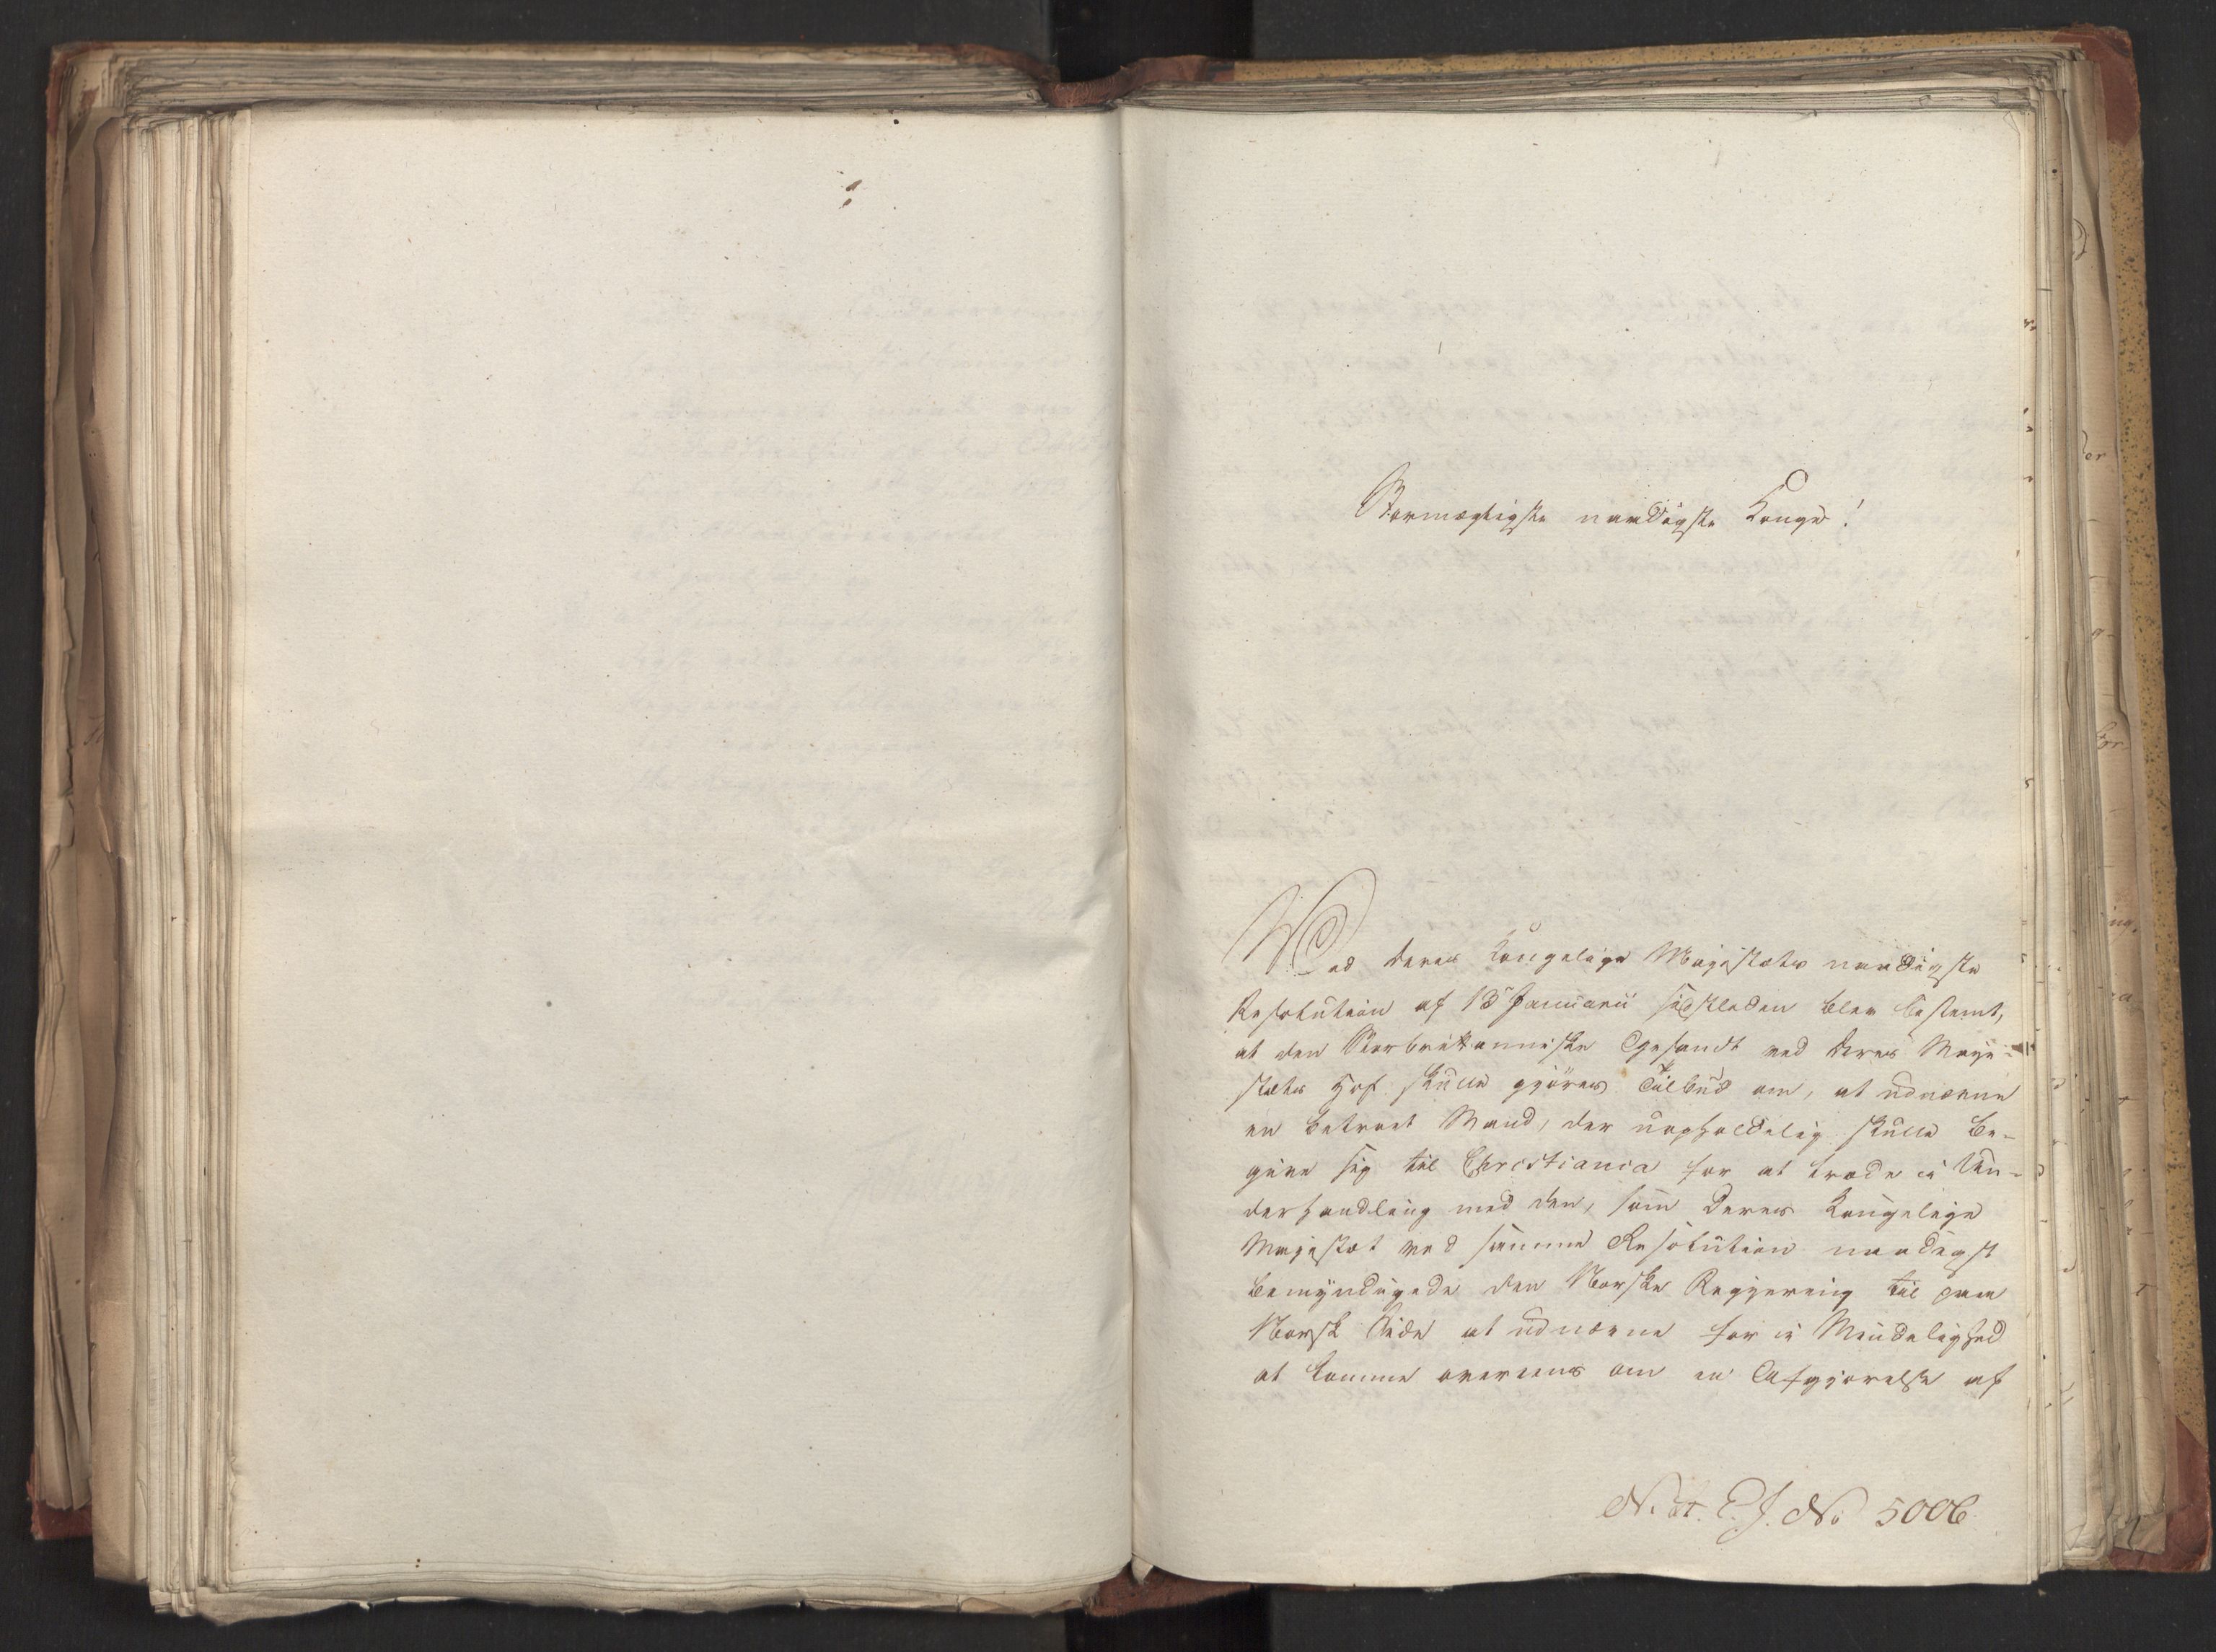 Stormægtigste naadigste Konge!
Ved Deres Kongelige Majestæts naadigste
Resolution af 13 Januarii sidstleden blev bestemt,
at den Storbrittanniske Gesandt ved Deres Maje-
stæts Hof skulle gjöres Tilbud om, at udnævne
en betroet Mand, der uopholdelig skulle be-
give sig til Christiania for at træde i Un-
derhandling med den, som Deres Kongelige
Majestæt ved samme Resolution naadigst
bemyndigede den Norske Regjering til paa
Norsk Side at udnævne for i Mindelighed
at komme overeens om en Afgjörelse af
N. St. E. J. No 5006